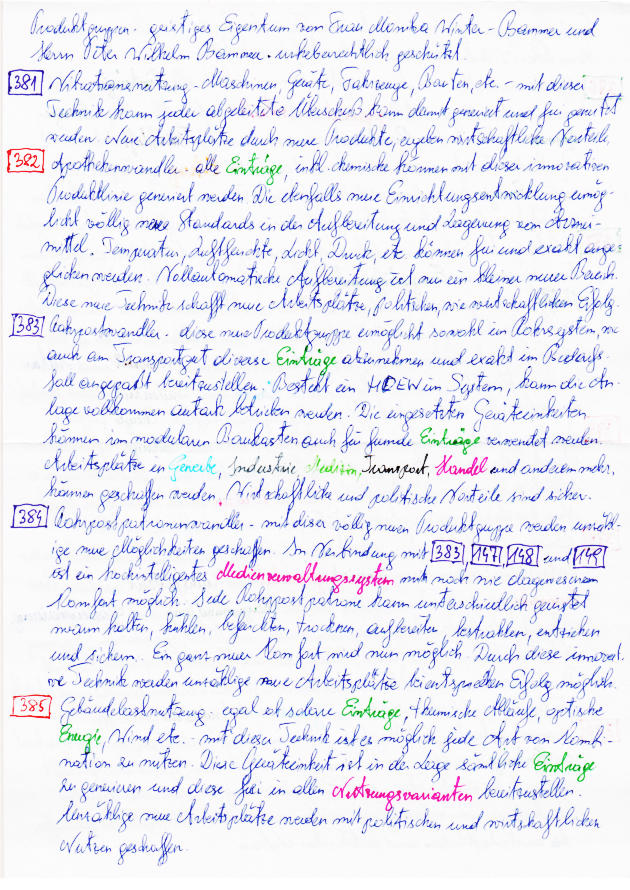 Produktgruppen - geistiges Eigentum von Frau Monika Winter-Bammer und
Herrn Peter Wilhelm Bammer - urheberrechtlich geschützt.
381 Vibrationsnutzung - Maschinen, Geräte, Fahrzeuge, Bauten, etc. - mit dieser
Technik kann jeder abgeleitete Überschuß kann damit generiert und frei genutzt
werden. Neue Arbeitsplätze durch neue Produkte, ergeben wirtschaftliche Vorteile,
382 Apothekenwandler - alle Einträge, inkl. chemische können mit dieser innovativen
Produktlinie generiert werden Die ebenfalls neue Einrichtungsentwicklung ermög-
licht völlig neue Standards in der Aufbereitung und Lagerung von Arznei-
mittel. Temperatur, Luftfeuchte, Licht, Druck, etc können frei und exakt ange-
glichen werden. Vollautomatische Aufbereitung ist nur ein kleiner neuer Bereich.
Diese neue Technik schafft neue Arbeitsplätze, politischen, wie wirtschaftlichen Erfolg.
383 Rohrpostwandler - diese neue Produktgruppe ermöglicht sowohl im Rohrsystem, wie
auch am Transportgut diverse Einträge abzunehmen und exakt im Bedarfs-
fall angepaßt bereitzustellen. Besteht ein HDEW im System, kann die An-
lage vollkommen autark betrieben werden. Die eingesetzten Geräteeinheiten
können im modularen Baukasten auch für fremde Einträge verwendet werden.
Arbeitsplätze in Gewerbe, Industrie Medizin, Transport, Handel und anderem mehr,
können geschaffen werden. Wirtschaftliche und politische Vorteile sind sicher.
384 Rohrpostpatronenwandler - mit dieser völlig neuen Produktgruppe werden unzähl-
ige neue Möglichkeiten geschaffen. In Verbindung mit 383, 147, 148 und 149
ist ein hochintelligentes Medienverwaltungssystem mit noch nie dagewesenem
Komfort möglich. Jede Rohrpostpatrone kann unterschiedlich genützt
warm halten, kühlen, befeuchten, trocknen, aufbereiten bestrahlen, entziehen
und sichern. Ein ganz neuer Komfort wird nun möglich. Durch diese innovati-
ve Technik werden unzählige neue Arbeitsplätze bei entsprechen Erfolg möglich.
385 Gebäudelastnutzung - egal ob solare Einträge, thermische Abläufe, optische
Energie, Wind etc. - mit dieser Technik ist es möglich jede Art von Kombi-
nation zu nutzen. Diese Geräteeinheit ist in der Lage sämtliche Einträge
zu generieren und diese frei in allen Nutzungsvarianten bereitzustellen.
Unzählige neue Arbeitsplätze werden mit politischen und wirtschaftlichen
Nutzen geschaffen.